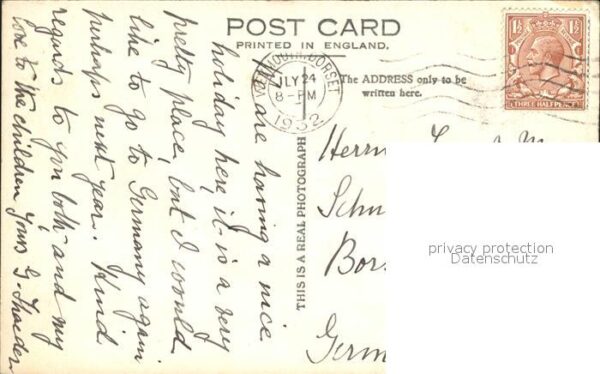 POST CARD
PRINTED IN ENGLAND.
The ADDRESS only to be
written here.
THIS IS A REAL PHOTOGRAPH
DORSET
JLY 24
8 - PM
1932
1½
1½
THREE HALFPENCE
We are having a nice
holiday here it is a very
pretty place, but I would
like to go to Germany again
perhaps next year. Kind
regards to you both, and my
love to the children Yours G.
Herrn
privacy protection
Datenschutz